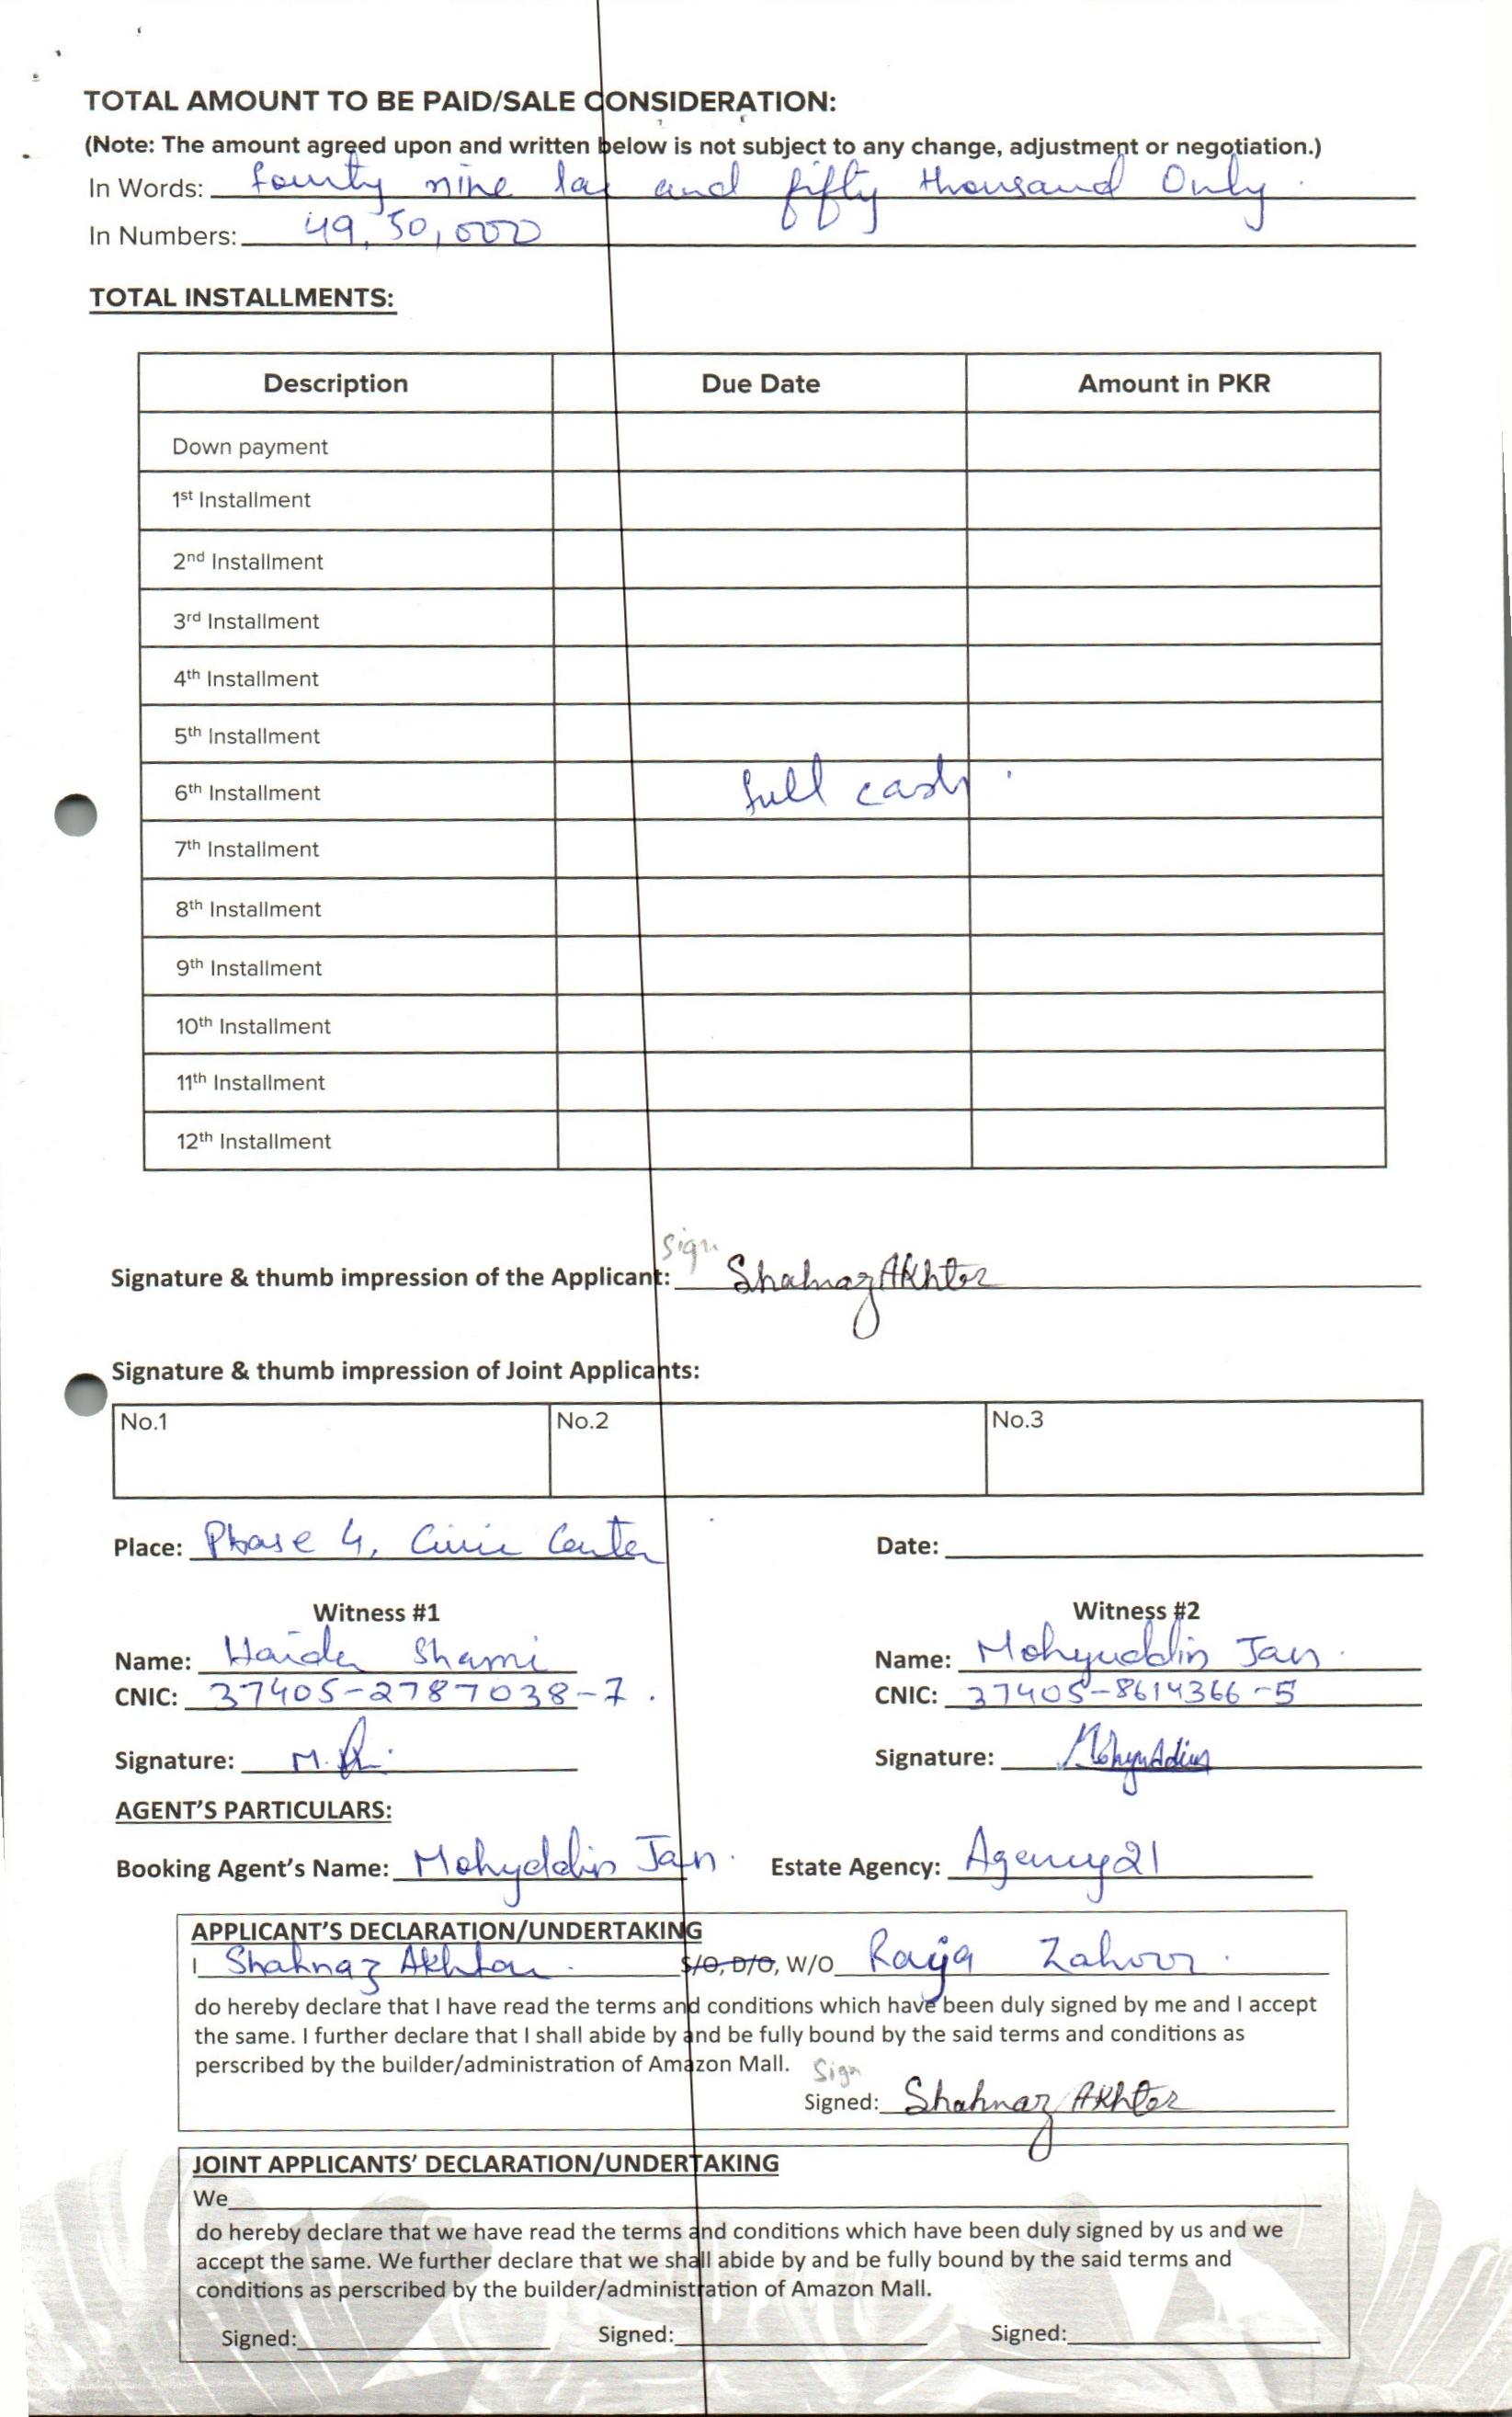 TOTAL AMOUNT TO BE PAID/SALE CONSIDERATION:
(Note: The amount agreed upon and written below is not subject to any change, adjustment or negotiation.)
In Words: fourty nine lac and fifty thousand Only.
In Numbers: 49,50,000
TOTAL INSTALLMENTS:
Description Due Date Amount in PKR
Down payment
1st Installment
2nd Installment
3rd Installment
4th Installment
5th Installment
6th Installment full cash.
7th Installment
8th Installment
9th Installment
10th Installment
11th Installment
12th Installment
Sign
Signature & thumb impression of the Applicant: Shahnaz Akhter
Signature & thumb impression of Joint Applicants:
No.1 No.2 No.3
Place: Phase 4, Civic Center Date:
Witness #1 Witness #2
Name: Haider Shami Name: Mohyuddin Jan.
CNIC: 37405-2787038-7. CNIC: 37405-8614366-5
Signature: M. Signature: Mohyuddin
AGENT'S PARTICULARS:
Booking Agent's Name: Mohyddin Jan. Estate Agency: Agency21
APPLICANT'S DECLARATION/UNDERTAKING
I Shahnaz Akhtar. S/O, D/O, W/O Raja Zahoor.
do hereby declare that I have read the terms and conditions which have been duly signed by me and I accept
the same. I further declare that I shall abide by and be fully bound by the said terms and conditions as
perscribed by the builder/administration of Amazon Mall.
Sign
Signed: Shahnaz Akhter
JOINT APPLICANTS' DECLARATION/UNDERTAKING
We
do hereby declare that we have read the terms and conditions which have been duly signed by us and we
accept the same. We further declare that we shall abide by and be fully bound by the said terms and
conditions as perscribed by the builder/administration of Amazon Mall.
Signed: Signed: Signed: